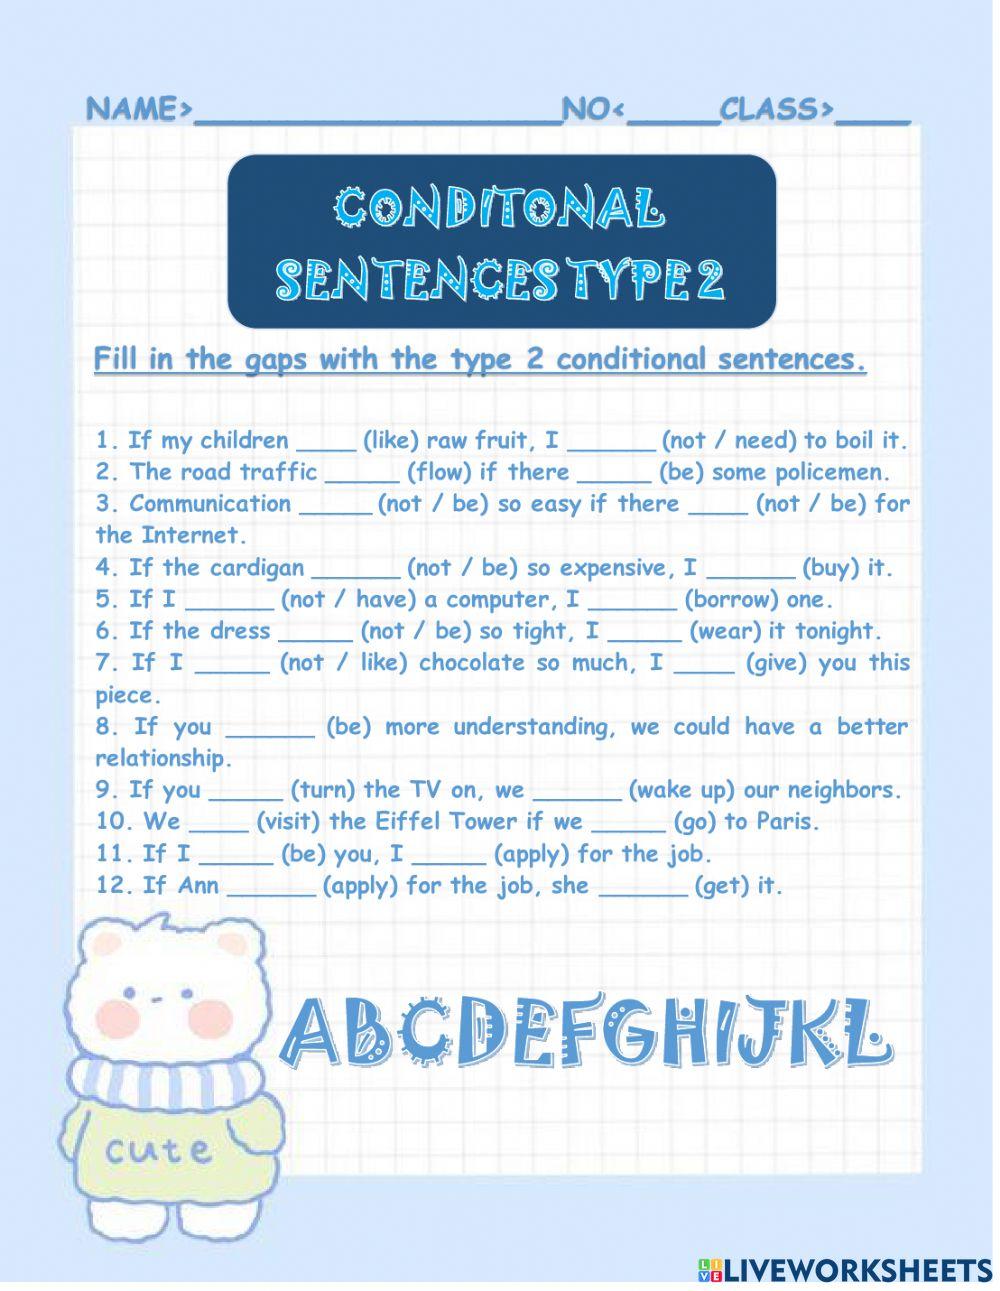 NAME>______________________NO<______CLASS>_____
CONDITONAL
SENTENCES TYPE 2
Fill in the gaps with the type 2 conditional sentences.
1. If my children ____ (like) raw fruit, I ______ (not / need) to boil it.
2. The road traffic _____ (flow) if there _____ (be) some policemen.
3. Communication _____ (not / be) so easy if there ____ (not / be) for
the Internet.
4. If the cardigan ______ (not / be) so expensive, I ______ (buy) it.
5. If I ______ (not / have) a computer, I ______ (borrow) one.
6. If the dress _____ (not / be) so tight, I _____ (wear) it tonight.
7. If I _____ (not / like) chocolate so much, I ____ (give) you this
piece.
8. If you ______ (be) more understanding, we could have a better
relationship.
9. If you _____ (turn) the TV on, we ______ (wake up) our neighbors.
10. We ____ (visit) the Eiffel Tower if we _____ (go) to Paris.
11. If I _____ (be) you, I _____ (apply) for the job.
12. If Ann ______ (apply) for the job, she ______ (get) it.
ABCDEFGHIJKL
cute
LIVE LIVEWORKSHEETS